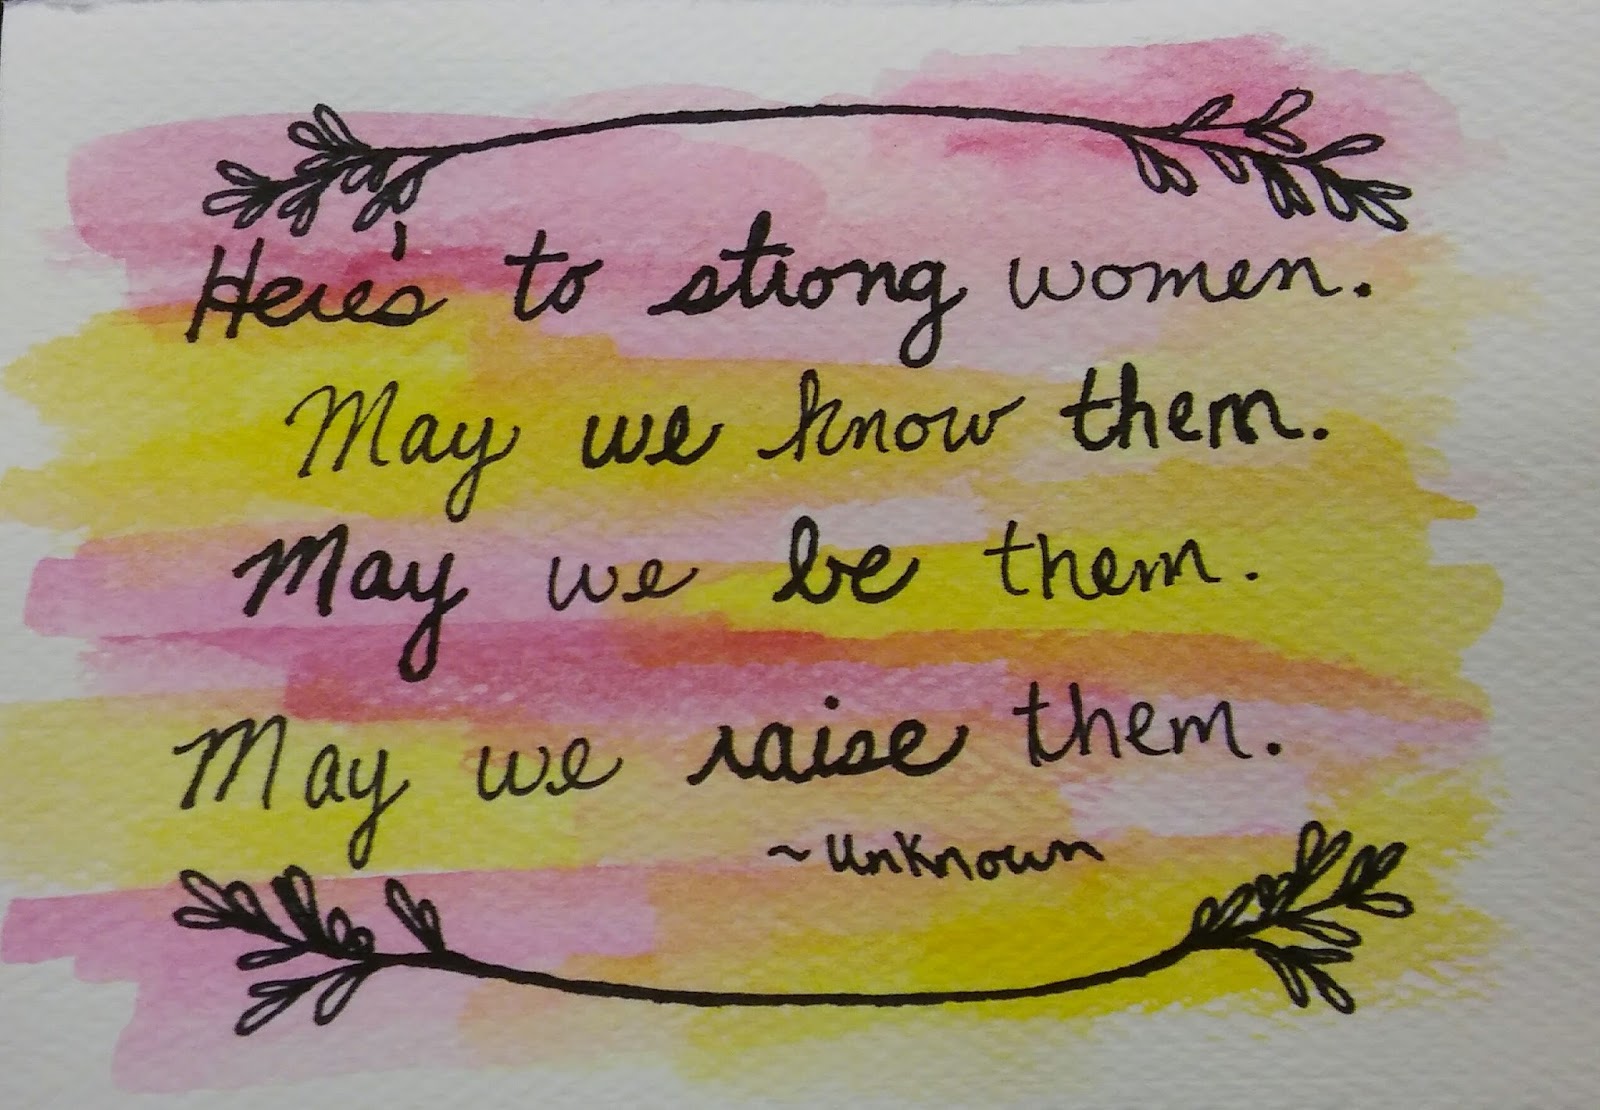 Here's to strong women.
May we know them.
May we be them.
May we raise them.
~ Unknown